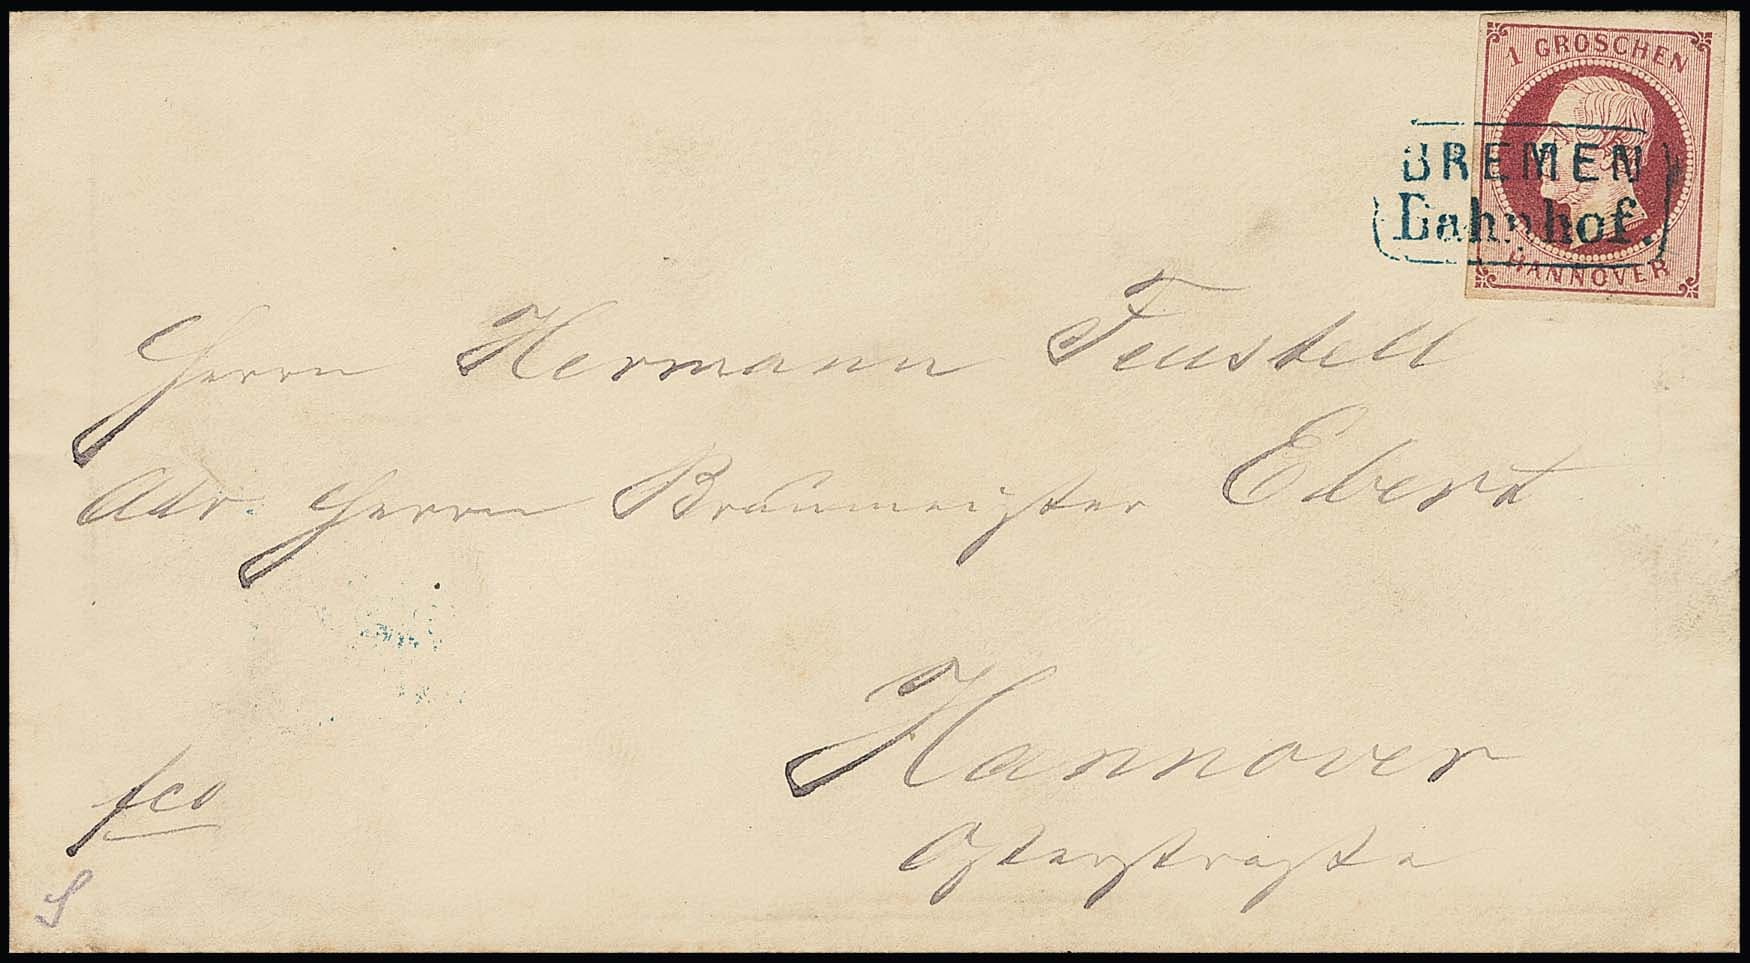 1 GROSCHEN
HANNOVER
BREMEN
Bahnhof.
Herrn Hermann Feustell
Adr. Herrn Braumeister Ebert
Hannover
Osterstraße
fco